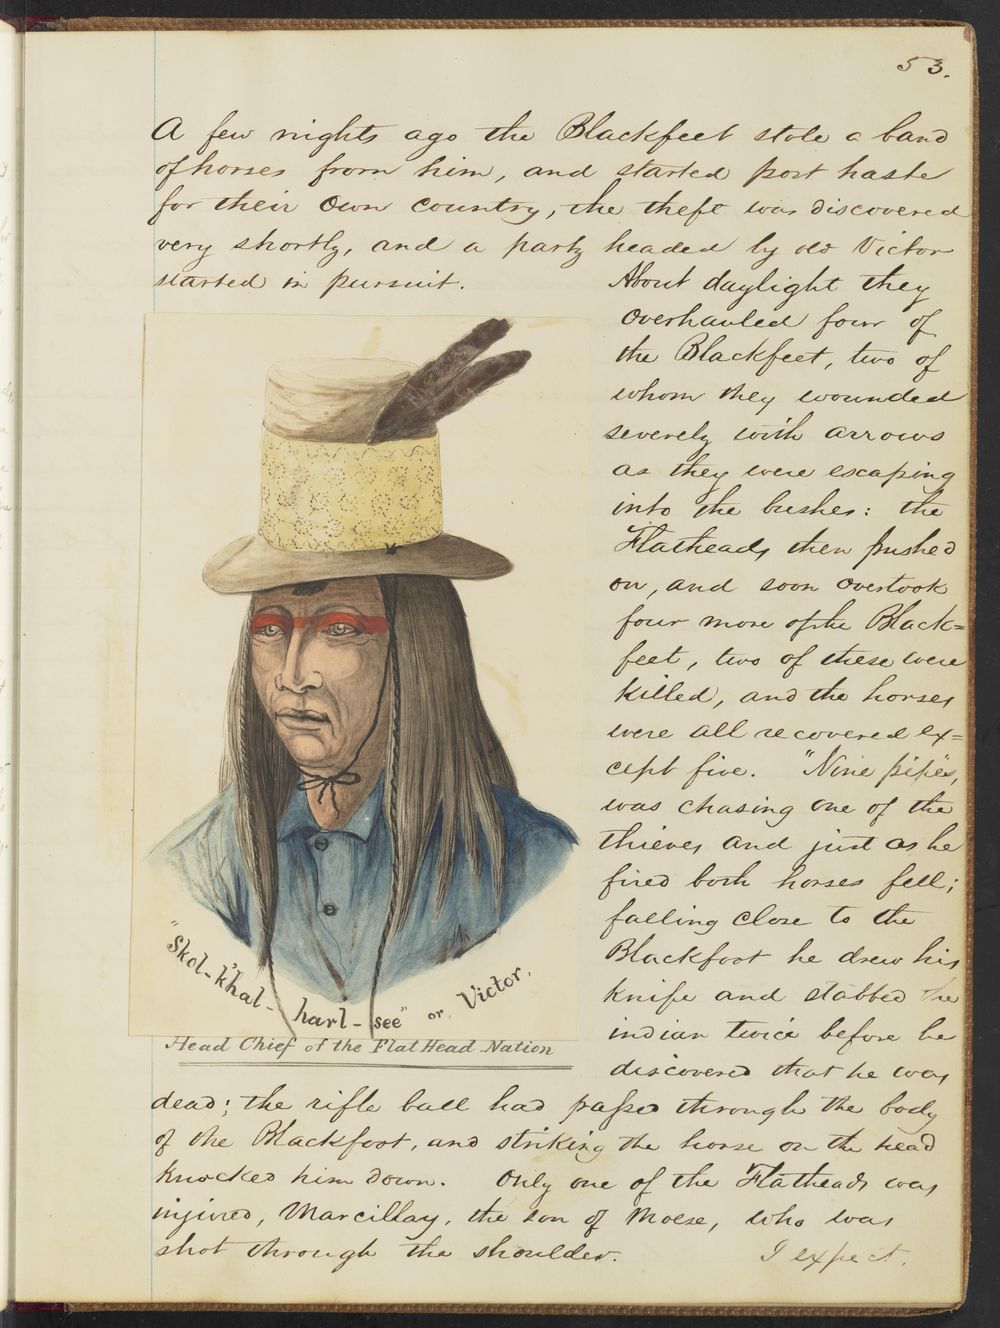 53.
A few nights ago the Blackfeet stole a band
of horses from him, and started post haste
for their own country, the theft was discovered
very shortly, and a party headed by old Victor
started in pursuit. About daylight they
overhauled four of
the Blackfeet, two of
whom they wounded
severely with arrows
as they were escaping
into the bushes: the
Flatheads then pushed
on, and soon overtook
four more of the Black=
feet, two of these were
killed, and the horses
were all recovered ex=
cept five. "Nine pipes",
was chasing one of the
thieves and just as he
fired both horses fell;
falling close to the
Blackfoot he drew his
knife and stabbed the
indian twice before he
discovered that he was
"Skol-k'hal-harl-see" or, Victor.
Head Chief of the Flat Head Nation
dead; the rifle ball had passed through the body
of the Blackfoot, and striking the horse on the head
knocked him down. Only one of the Flatheads was
injured, Marcillay, the son of Moese, who was
shot through the shoulder. I expect.